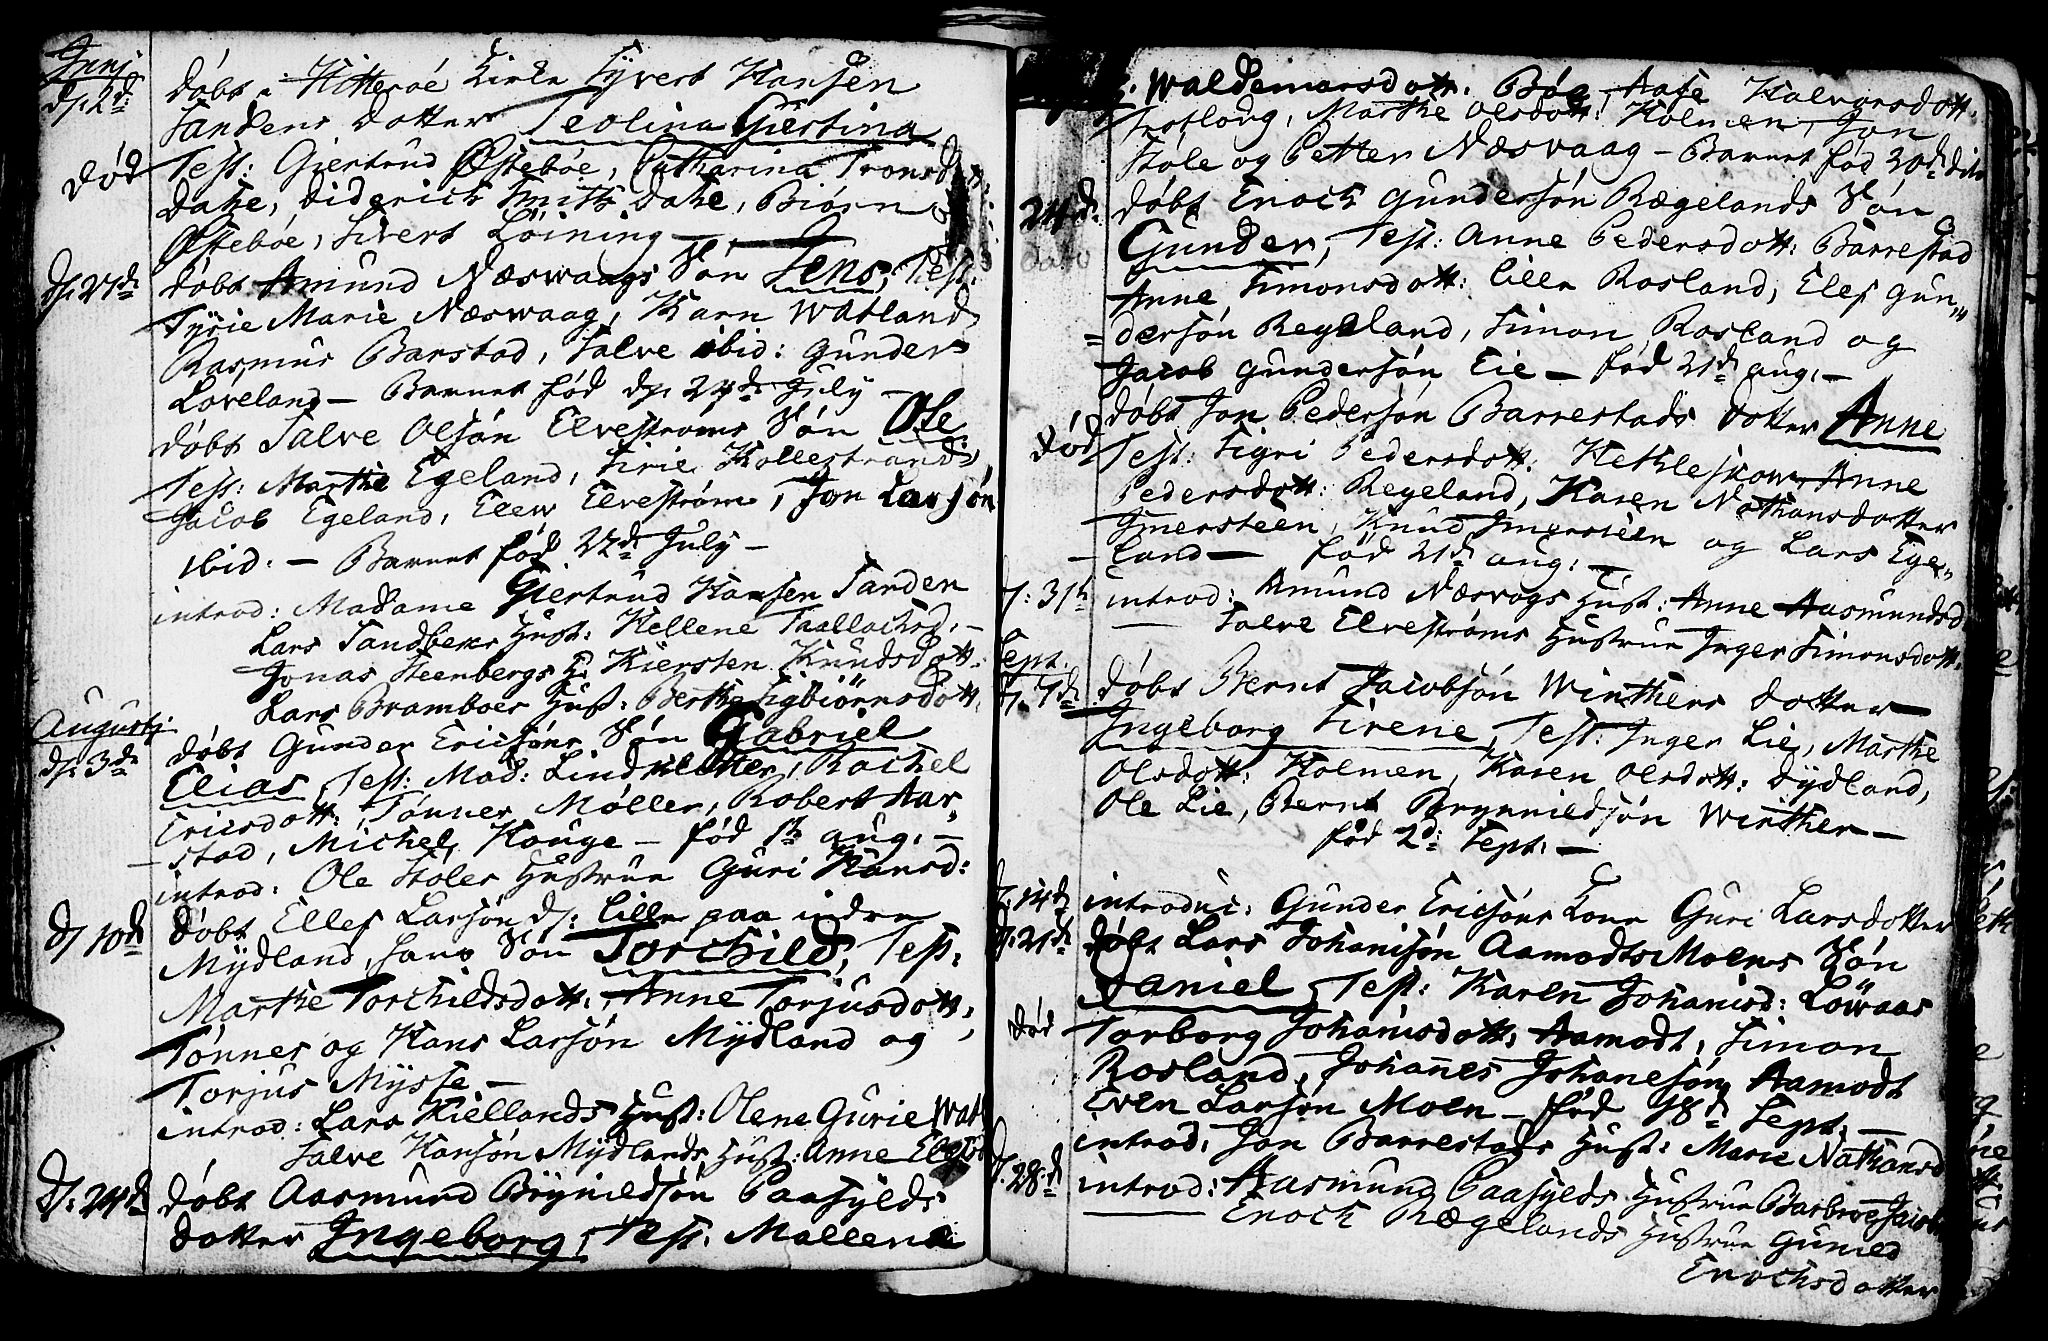 Junj
d: 2d:
døbt i Hitteröe Kirke Syvert Hansen
Sandens dotter Teolina Giertina
død
Test: Giertrud Østebøe, Catharina Tronsd
Dahe, Diderich Smith Dahe, Biörn
Østebøe, Sivert Löining —
d: 27de
døbt Amund Næswaags Sön Jens, Test:
Tyrie Marie Næswaag, Karn Watland
Rasmus Barstad, Salve ibid: Gunder
Loveland — Barnet fød d: 24de July
døbt Salve Olsøn Elvestrøms Sön Ole
Test: Marthe Egeland, Sirie Kollestrand,
Jacob Egeland, Elew Elvestrøm, Jon Larsøn
ibid: — Barnet fød 22de July —
introd: Madame Giertrud Hansen Sanden
Lars Sandbeks Hust: Hellene Taallachsd: —
Jonas Steenbergs H: Kiersten Knudsdott:
Lars Bramboes Hust: Berthe Sigbiörnsdott.
Augustj
d: 3de
døbt Gunder Ericsöns Sön Gabriel
Elias, Test: Mad: Lindkletter, Rachel
Ericsdott: Tønner Møller, Robert Aar„
stad, Michel Houge — fød 1te aug. —
introd: Ole Stoles Hustrue Guri Hansd:
d: 10de
døbt Ellef Larsøn d: lille paa indre
Mydland, hans Sön Torchild, Test:
Marthe Torchildsdott:, Anne Torjusdott,
Tønnes og Hans Larsøn Mydland og
Torjus Mysse —
introd: Lars Kiellands Hust: Olene Gurie Wat
Salve Hansøn Mydlands Hust: Anne
d: 24de
døbt Aasmund Brynildsøn Paasylds
dotter Ingeborg, Test. Mallene
Waldemarsdott. Böe, Aase Halvorsdott.
Marthe Olsdott: Holmen, Jon
Støle og Petter Næsvaag — Barnet fød 20de dito
24de
døbt Enoch Gundersøn Rægelands Sön
Gunder, Test: Anne Pedersdott: Barrestad
Anne Simonsdott: lille Rosland, Elef Gun„
=dersøn Regeland, Simon Rosland og
Jacob Gundersøn Eie — fød 21de aug. —
døbt Jon Pedersøn Barrestads dotter Anne
død
Test: Sigri Pedersdott. Anne
Pedersdott: Regeland, Karen Nathansdotter
Imersteen, Knud Imersteen og Lars Ege„
land — fød 21de aug: —
d: 31te
introd: Amund Næsvogs Hust: Anne Aasmundsd
Salve Elvestrøms Hustrue Inger Simonsdott.
Sept.
d: 7de
døbt Bernt Jacobsøn Winthers dotter
Ingeborg Sirene, Test: Inger Lie, Marthe
Olsdott: Holmen, Karen Olsdott: Dydland,
Ole Lie, Bernt Brynnieldsøn Winther —
fød 2d: Sept. —
d: 14de
introduc: Gunder Ericsøns Kone Guri Larsdotter
d: 21de
døbt Lars Johanisøn Aamodts Moens Sön
Daniel, Test: Karen Johanisd: Lowaas
død
Torborg Johanisdott. Aamodt, Simon
Rosland, Johannes Johanesøn Aamodt
Even Larsøn Moen — fød 18de Sept. —
introd: Jon Barrestads Hust: Marie Nathansd
d: 28de
introd: Aasmund Paasylds Hustrue Barbroe Jacobs
Enoch Rægelands Hustrue Gunild
Enochsdotter